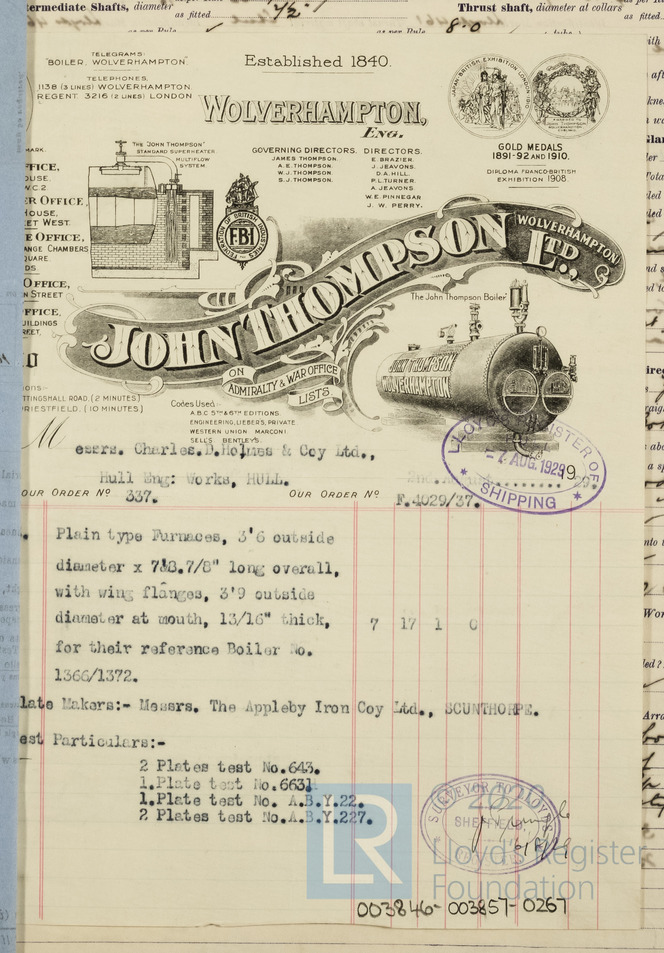 termediate Shafts, diameter
as fitted
7½"
Thrust shaft, diameter at collars
as fitted
as per Rule
as per Rule
8.0
TELEGRAMS:
"BOILER, WOLVERHAMPTON"
TELEPHONES,
1138 (3 LINES) WOLVERHAMPTON
REGENT 3216 (2 LINES) LONDON
Established 1840.
WOLVERHAMPTON,
ENG.
JAPAN BRITISH EXHIBITION LONDON 1910
GOLD MEDALS
1891-92 AND 1910.
DIPLOMA FRANCO-BRITISH
EXHIBITION 1908.
THE "JOHN THOMPSON"
STANDARD SUPERHEATER.
MULTIFLOW
SYSTEM
GOVERNING DIRECTORS.
JAMES THOMPSON.
A.E. THOMPSON.
W.J. THOMPSON.
S.J. THOMPSON.
DIRECTORS.
E. BRAZIER.
J. JEAVONS.
D.A. HILL.
P.L. TURNER.
A. JEAVONS.
W.E. PINNEGAR
J. W. PERRY.
MARK.
FFICE,
OUSE,
W.C.2
ER OFFICE,
HOUSE,
EET WEST.
E OFFICE,
ANGE CHAMBERS
QUARE
DS
OFFICE,
N STREET
FFICE,
UILDINGS
REET,
FEDERATION OF BRITISH INDUSTRIES
FBI
JOHN THOMPSON
WOLVERHAMPTON
LTD.,
The John Thompson Boiler
JOHN THOMPSON
WOLVERHAMPTON
ON
ADMIRALTY & WAR OFFICE
LISTS.
ons:-
TTINGSHALL ROAD. (2 MINUTES)
RIESTFIELD, (10 MINUTES.)
Codes Used:-
A.B.C 5TH & 6TH EDITIONS.
ENGINEERING, LIEBERS, PRIVATE.
WESTERN UNION. MARCONI.
SELL'S BENTLEY'S.
Messrs. Charles.D.Holmes & Coy Ltd.,
Hull Eng: Works, HULL.
2nd August 1929.
LLOYD'S REGISTER OF
- 7 AUG. 1929
SHIPPING
OUR ORDER Nº 337.
OUR ORDER Nº F.4029/37.
Plain type Furnaces, 3'6 outside
diameter x 7'8.7/8" long overall,
with wing flanges, 3'9 outside
diameter at mouth, 13/16" thick, 7 17 1 0
for their reference Boiler No.
1366/1372.
late Makers:- Messrs. The Appleby Iron Coy Ltd., SCUNTHORPE.
est Particulars:-
2 Plates test No.643.
1.Plate test No.6631
1.Plate test No. A.B.Y.22.
2 Plates test No.A.B.Y.227.
SURVEYOR TO LLOYD'S
SHEFFIELD
LR
2020
Lloyd's Register
Foundation
003846-003857-0267